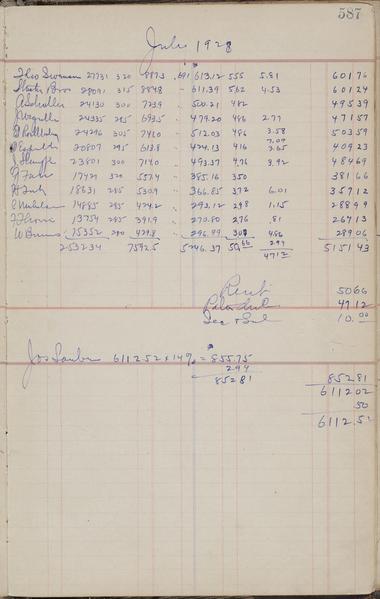 587
July 1928
Theo Swanson 27731 320 887.3 .691 613.12 555 5.81 60176
Bros 28091 315 884.8 " 611.39 562 4.53 60124
A Schaller 24130 300 723.9 " 500.21 482 49539
J Wagner 24335 285 693.5 " 479.20 486 2.77 47157
24296 305 741.0 " 512.03 486 3.58 50359
20807 295 613.8 " 424.13 416 7.09 3.65 40923
23801 300 714.0 " 493.37 476 3.92 48469
17429 320 557.4 " 385.16 350 38166
18631 285 530.9 " 366.85 372 6.01 35712
14885 285 424.2 " 293.12 298 1.15 28899
13754 285 391.9 " 270.80 276 .81 26713
W Bruns 15352 280 429.8 " 296.99 307 4.86 28906
253234 7592.5 5246.37 50.66 2.94 515143
47.12
Rent 5066
47.12
Sec & Sal 10.00
Jos 611252 x 14% = 855.75
2.94
85281 85281
611202
.50
6112.52